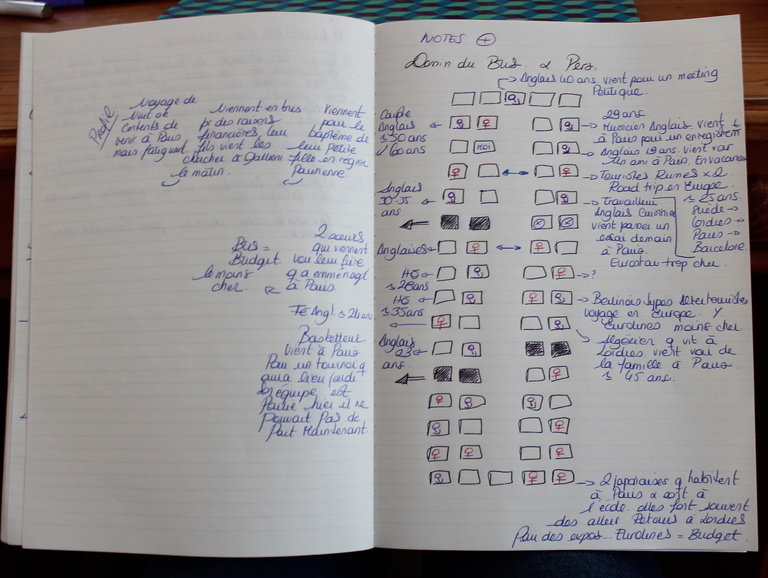 Profil
Voyage de
nuit de
Contents de
venir à Paris
mais fatiguent
Viennent en bus
pr des raisons
financières, leur
fils vient les
chercher à Gallieni
le matin.
Viennent
pour le
baptême de
leur petite
fille en région
Parisienne
2 sœurs
qui viennent
voir leur frère
q a emménagé
à Paris
Bus =
Budget
le moins
cher.
Fe Angl ≈ 24 ans
Basketteur
vient à Paris
Pour un tournoi q
son équipe est
Partie hier il ne
Pouvait Pas de
Part Maintenant.
NOTES +
Dessin du Bus. & Pers.
Anglais 40 ans, vient pour un meeting
Politique.
Couple
Anglais
≈ 50 ans
/ 60 ans
29 ans
Musicien Anglais, vient
à Paris pour un enregistrem
Anglais 19 ans vient voir
1 ans à Paris. En vacances
MOI
Touristes Russes x 2
Road trip en Europe.
Anglais
30-35
ans
Travailleur
Anglais Cuisinier
vient passer un
essai demain
à Paris.
Eurostar trop cher
≈ 25 ans
Suède →
Londres →
Paris →
Barcelone
Anglaises
HO
≈ 28 ans
?
HO
≈ 35 ans
Berlinois types
voyage en Europe. Y
Eurolines moins cher
Anglais
23
ans.
Algérien q vit à
Londres, vient voir de
la famille à Paris
≈ 45 ans.
2 japonaises q habitent
à Paris & sont à
l'école. elles font souvent
des aller Retours à Londres
Pour des expos... Eurolines = Budget.